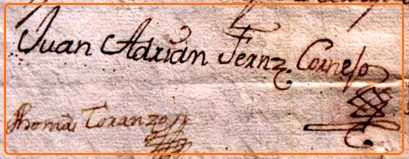 Juan Adrian Fernz Cornejo
Thomas Toranzo